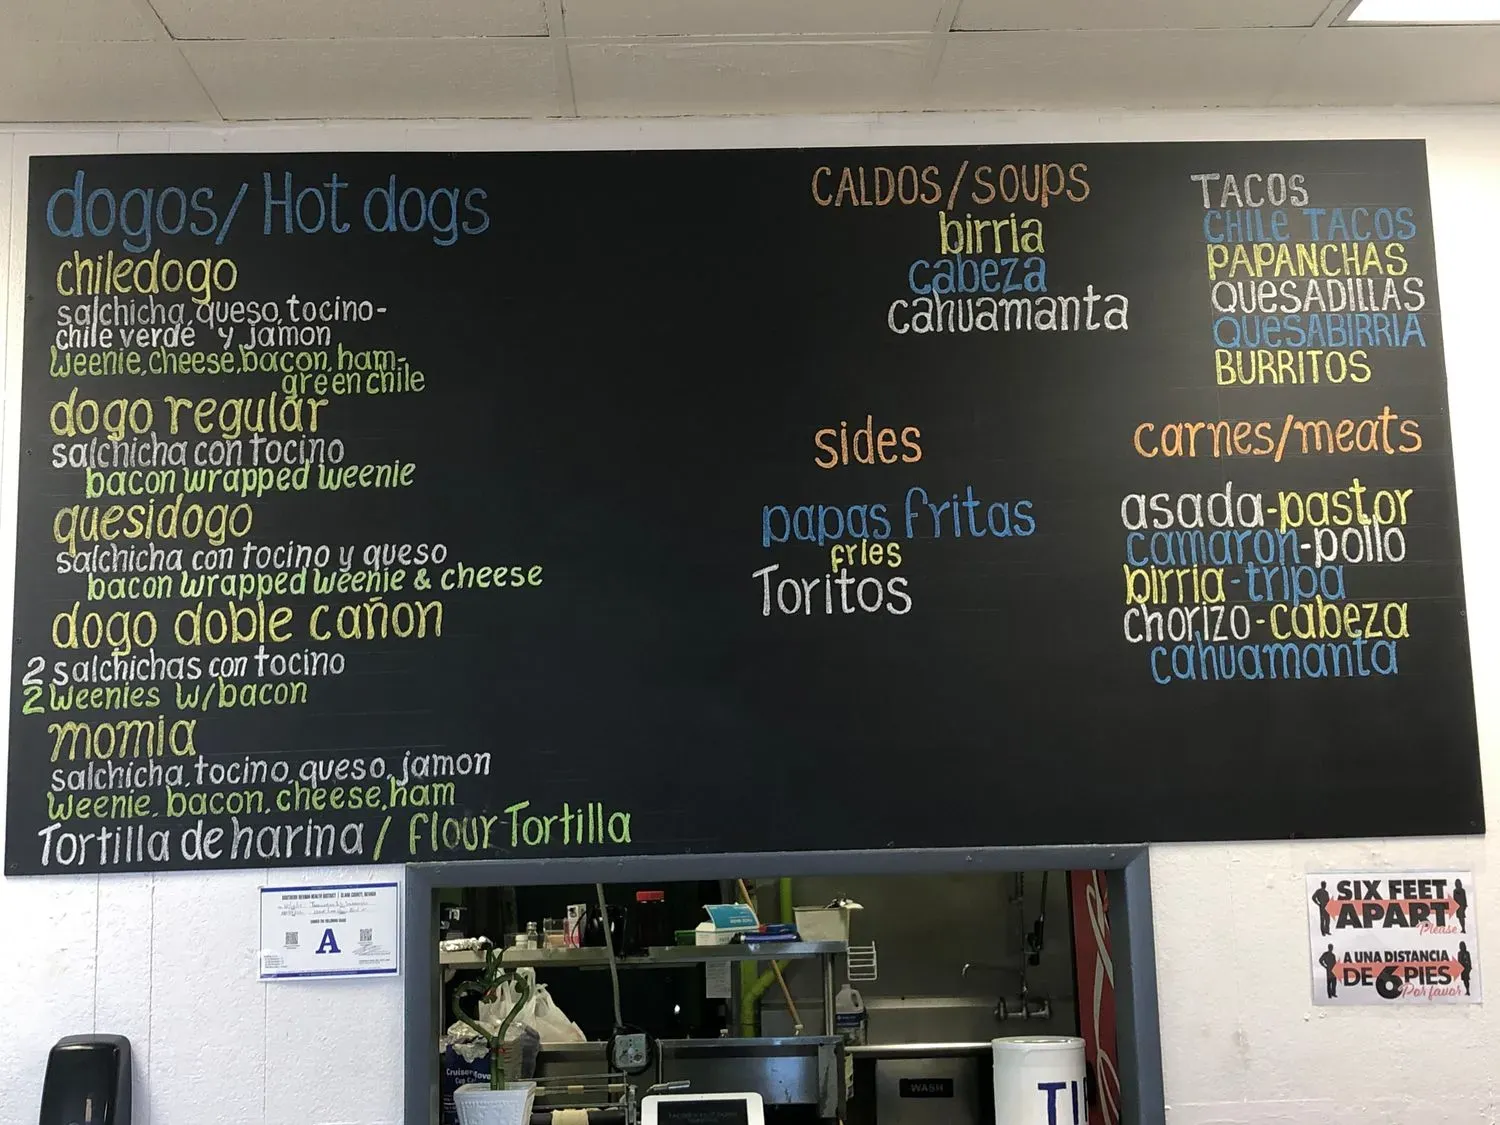 dogos/Hot dogs
chiledogo
salchicha, queso, tocino-
chile verde y jamon
weenie, cheese, bacon, ham-
green chile
dogo regular
salchicha con tocino
bacon wrapped weenie
quesidogo
salchicha con tocino y queso
bacon wrapped weenie & cheese
dogo doble cañon
2 salchichas con tocino
2 weenies w/bacon
momia
salchicha, tocino, queso, jamon
weenie, bacon, cheese, ham
Tortilla de harina / flour Tortilla
CALDOS/SOUPS
birria
cabeza
cahuamanta
sides
papas fritas
fries
Toritos
TACOS
CHILE TACOS
PAPANCHAS
QUESADILLAS
QUESABIRRIA
BURRITOS
carnes/meats
asada-pastor
camaron-pollo
birria-tripa
chorizo-cabeza
cahuamanta
A
SIX FEET
APART
Please
A UNA DISTANCIA
DE 6 PIES
Por favor
WASH